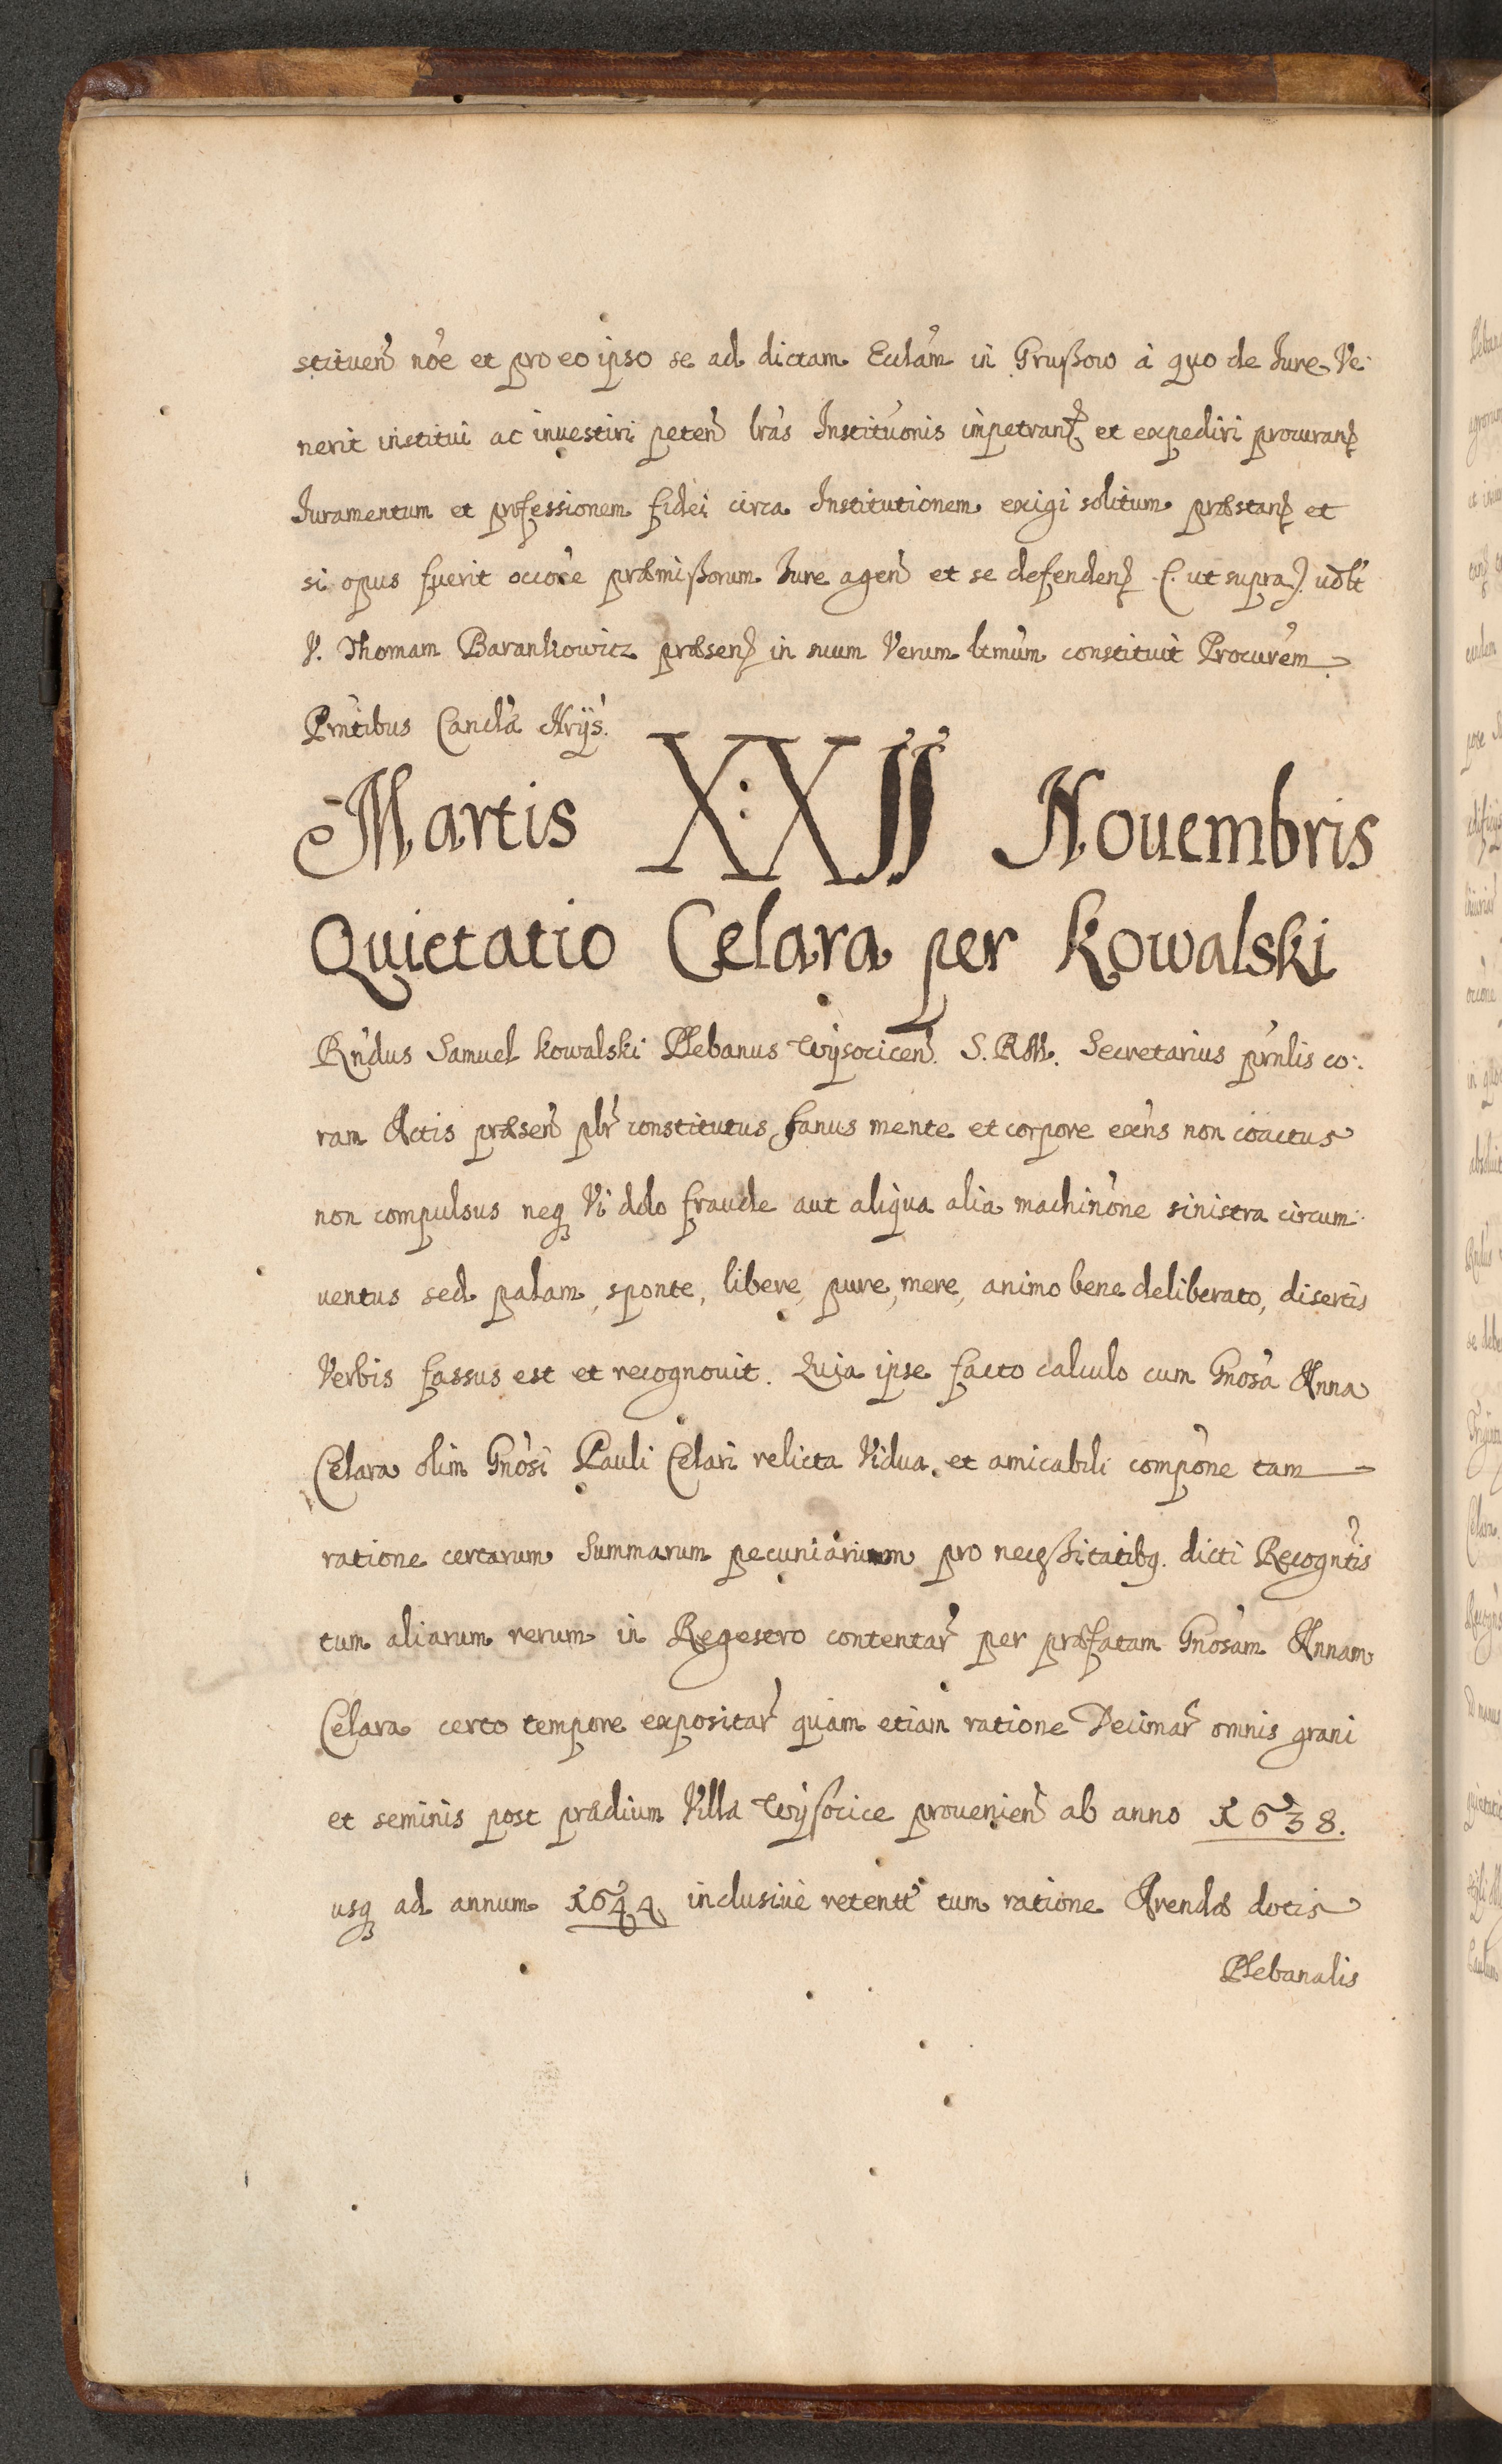 stituen̄ nōe et pro eo ipso se ad dictam Ecclām in Grußow à quo de Jure Ve:
nerit institui ac inuestiri peten̄ lrās Institūonis impetran̄ et expediri procuran̄
Juramentum et professionem fidei circa Institutionem exigi solitum præstan̄ et
si opus fuerit occōe præmißorum Jure agen̄ et se defenden̄ (. ut supra.)
V. Thomam Barankowicz præsen̄ in suum Verum ltmūm constituit Procurēm
Prntībus Canclā Nrijs.
Martis XXII Nouembris
Quietatio Celara per Kowalski
Rndus Samuel Kowalski Plebanus Wysocicen̄. S.R.M. Secretarius prnlis co:
ram Actis præsen̄ plr̄ constitutus sanus mente et corpore exēns non cöactus
non compulsus neq Vi dolo fraude aut aliqua alia machinōne sinistra circum:
uentus sed palam, sponte, libere, pure, mere, animo bene deliberato, disertis
Verbis fassus est et recognouit. Quia ipse facto calculo cum Gnosā Anna
Celara olim Gnōsi Pauli Celari relicta Vidua, et amicabili compōne tam
ratione certarum Summarum pecuniarium pro neceßitatibq. dicti Recogntīs
tum aliarum rerum in Regestro contentar̄ per præfatam Gnosām Annam
Celara certo tempore expositar̄ quàm etiam ratione Decimar̄ omnis grani
et seminis post prædium Villæ Wysocice prouenien̄ ab anno 1638.
usq ad annum 1644 inclusiuè retentt̄ tum ratione Arendæ dotis
Plebanalis